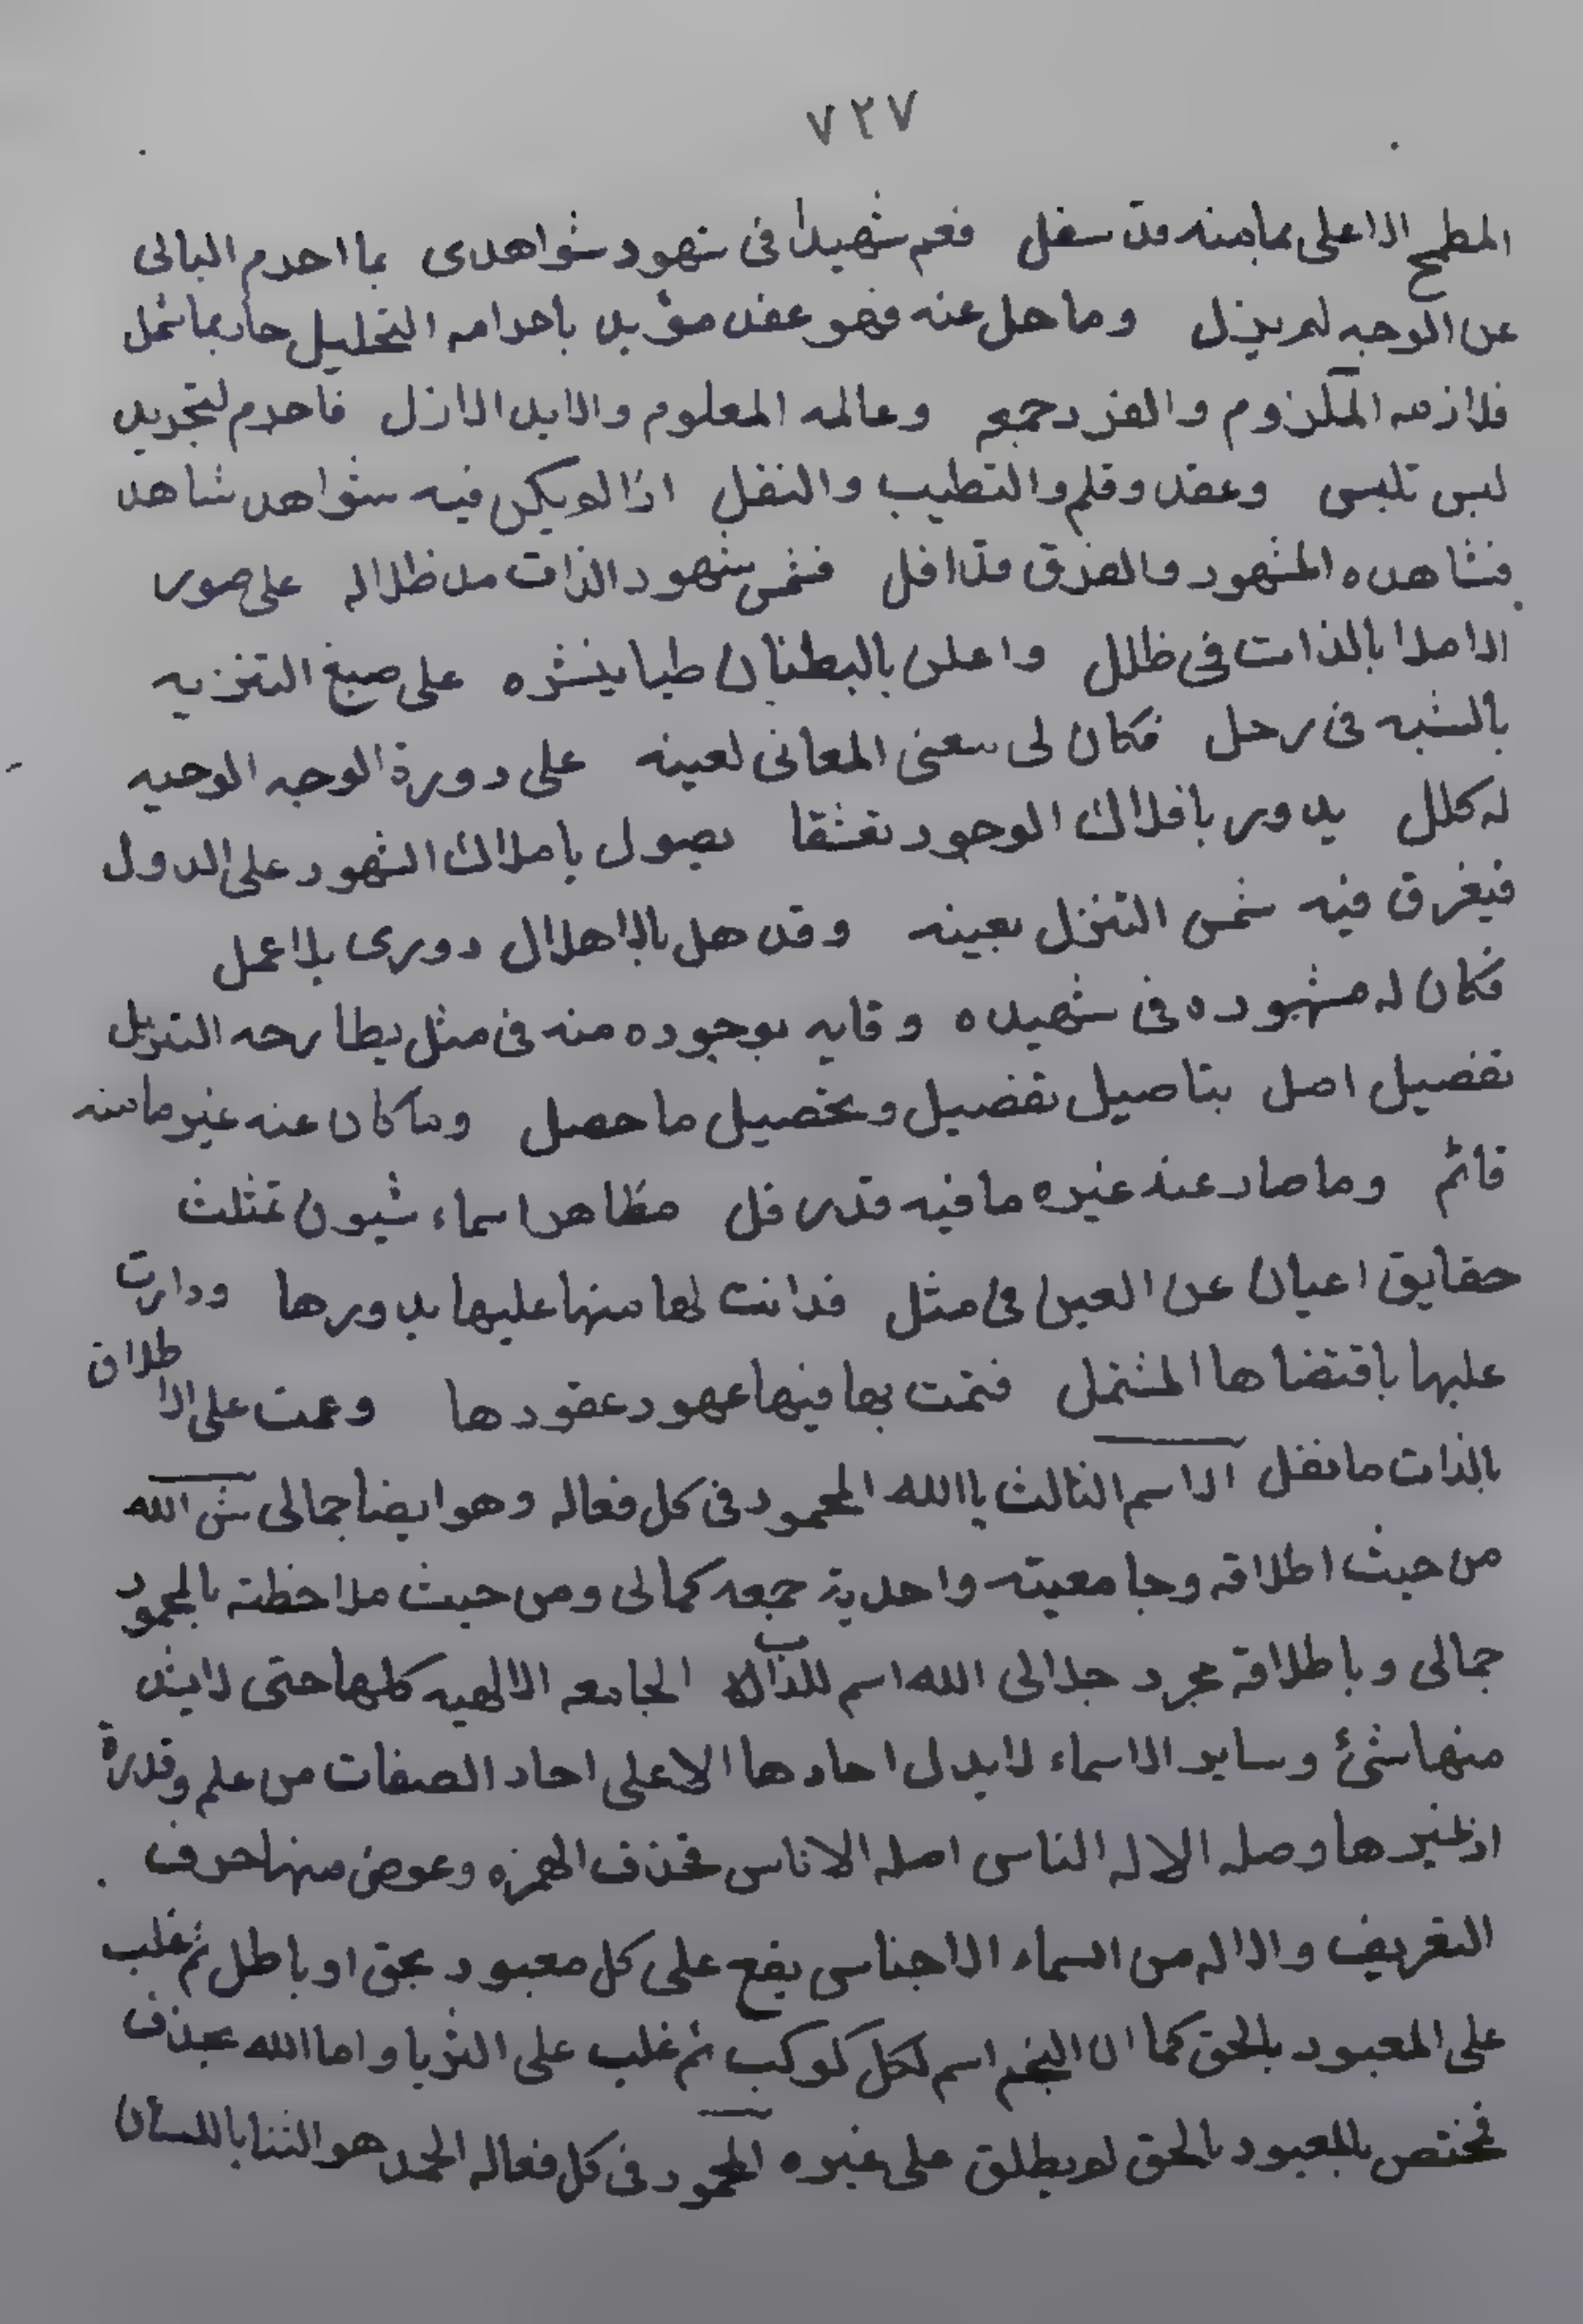 ٧٢٧
المطمح الاعلى بما منه قد سفل فعم شهيدا فى شهود شواهدى بما احرم البالى
عن الوجه لم يزل وما حل عنه فهو عقد مؤبد باحرامه التحليل حاد بما شمل
فلازمه الملزوم والفرد جمعه وعالمه المعلوم والابد الازل فاحرم لتجريد
لبس تلبس وعقد وقلم والتطيب والنفل اذا لم يكن فيه شواهد شاهد
فشاهده المشهود والفرق قد افل فشمس شهود الذات مد ظلاله على صور
الاملا بالذات فى ظلل واعلن بالبطنان طيا بنشره على صبغ التنزيه
بالشبه فى رحل فكان لى معنى المعانى لعينه على دورة الوجه الوحيه
له كلل يدور بافلاك الوجود تعشقا يصول باملاك الشهود على الدول
فيغرق فيه شمس التنزل بعينه وقد هل بالاهلال دورى بلا عمل
فكان له مشهوده فى شهيده وقايه بوجوده منه فى مثل يطارحه التنزيل
تفضيل اصل بتاصيل تفضيل وتحصيل ما حصل وما كان عنه غير ما منه
قائم وما صار عنه غيره ما فيه قدر فل مظاهر اسماء شيون تمثلث
حقايق اعيان عن العين فى مثل فدانت لها منها عليها بدورها ودارت
عليها باقتضاها المشتمل فتمت بها فيها عهود عقودها وعمت على الاطلاق
بالذات ما نفل الاسم الثالث يا الله المحمود فى كل فعاله وهو ايضا جمالى ش الله
من حيث اطلاقه وجامعيته واحدية جمعه كمالى ومن حيث ملاحظته بالمحمود
جمالى وباطلاقه مجرد جلالى الله اسم للذات الجامعه الالهيه كلها حتى لا يشد
منها شئ وساير الاسماء لا يدل احادها الا على احاد الصفات من علم وقدرة
او غيرها وصله الاله الناس اصله الاناس فحذف الهمزه وعوض منها حرف
التعريف والاله من اسماء الاجناس يقع على كل معبود بحق او باطل ثم غلب
على المعبود بالحق كما ان النجم اسم لكل كوكب ثم غلب على الثريا واما الله بحذف
فمختص بالمعبود بالحق لم يطلق على غيره المحمود فى كل فعاله الحمد هو الثنا باللسان